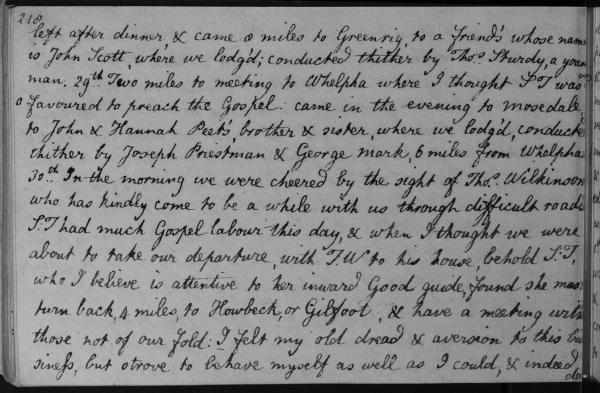 218.
left after dinner & came 8 miles to Greenrig, to a friend's whose name
is John Scott, where we lodg'd; conducted thither by Thos. Sturdy, a young
man. 29th. Two miles to meeting to Whelpha where I thought S.T was
favoured to preach the Gospel: came in the evening to Mosedale
to John & Hannah Peet's, brother & sister, where we lodg'd, conducted
thither by Joseph Priestman & George Mark, 6 miles from Whelpha
30th. In the morning we were cheered by the sight of Thos. Wilkinson
who has kindly come to be a while with us through difficult roads
S.T had much Gospel labour this day, & when I thought we were
about to take our departure, with T.W to his house, behold S.T,
who I believe is attentive to her inward Good guide, found she must
turn back, 4 miles, to Howbeck, or Gilfoot, & have a meeting with
those not of our fold: I felt my old dread & aversion to this bu
siness, but strove to behave myself as well as I could, & indeed